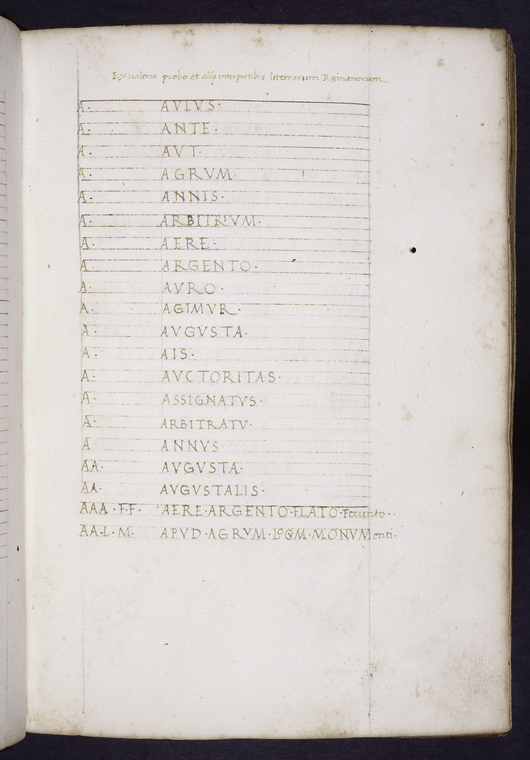 Ex valerio probo et aliis interpretibus litterarum Romanorum
A· AVLVS·
A· ANTE·
A· AVT·
A· AGRVM·
A· ANNIS·
A· ARBITRIVM·
A· AERE·
A· ARGENTO·
A· AVRO·
A· AGIMVR·
A· AVGVSTA·
A· AIS·
A· AVCTORITAS·
A· ASSIGNATVS·
A· ARBITRATV·
A ANNVS·
AA· AVGVSTA·
AA· AVGVSTALIS·
AAA·F·F· AERE·ARGENTO·FLATO·
AA·L·M· APVD·AGRVM· MONVMenti·